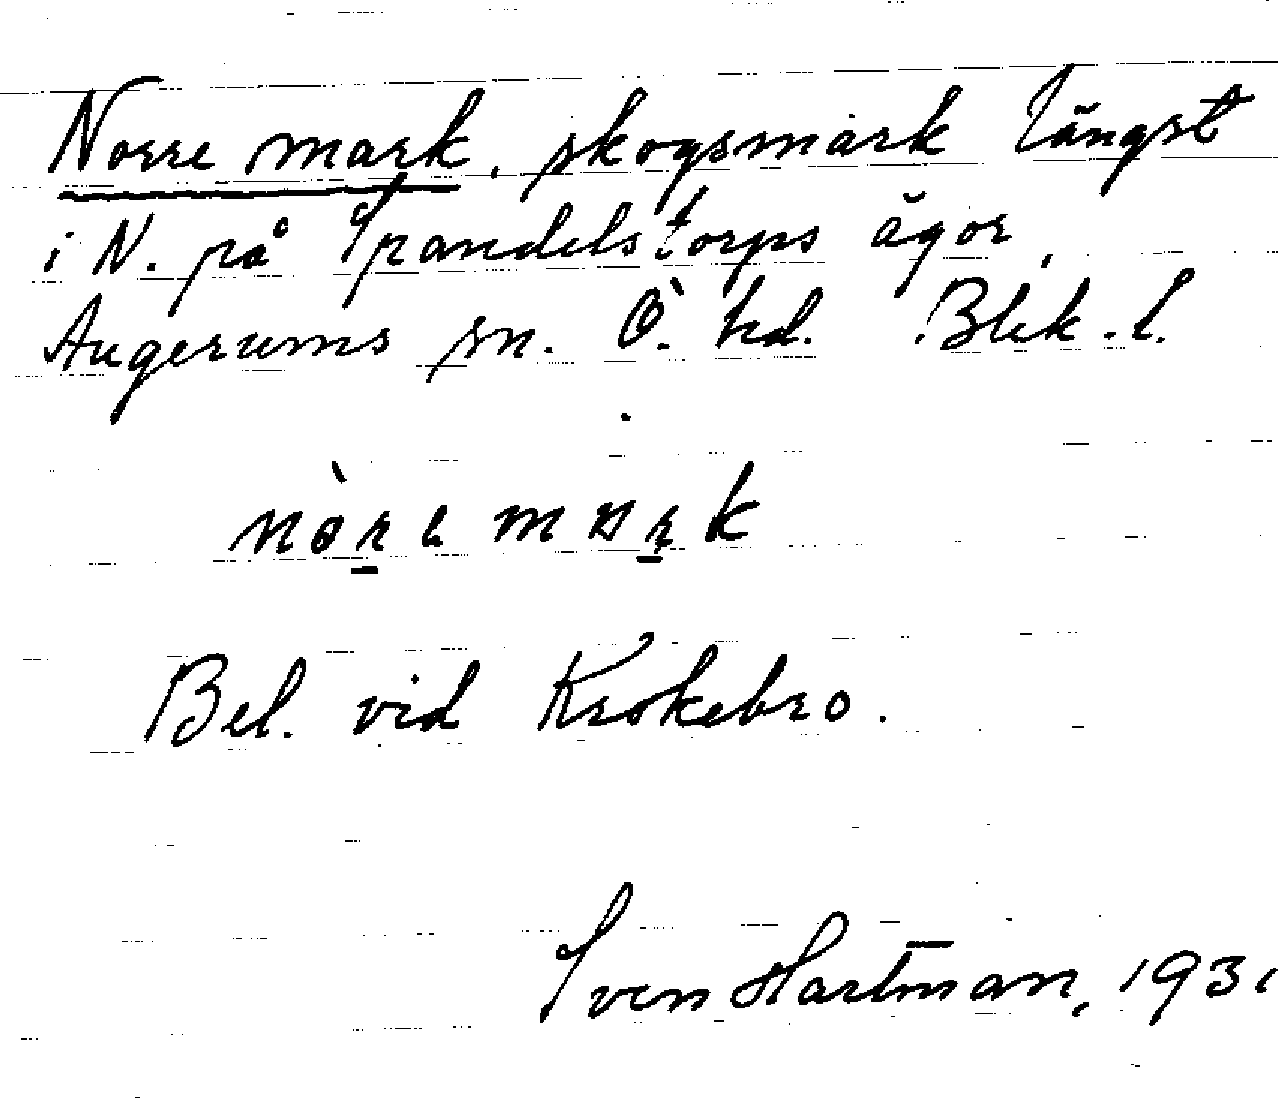 Norre mark, skogsmark längst
i N. på Spandelstorps ägor,
Augerums sn. Ö. hd. Blek. l.
nòre mark
Bel. vid Krokebro.
Sven Hartman, 1931